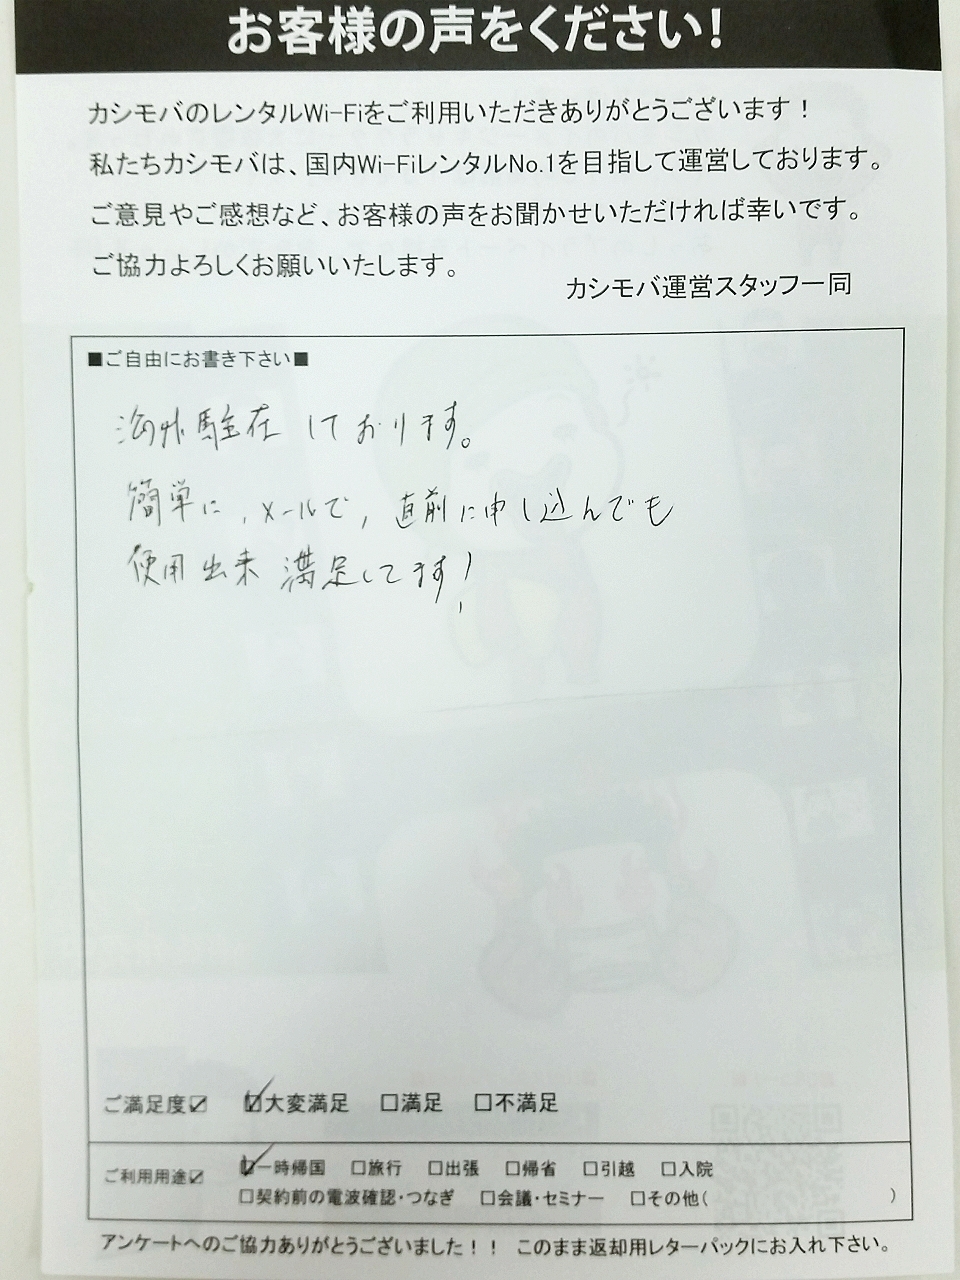 お客様の声をください!
カシモバのレンタルWi-Fiをご利用いただきありがとうございます！
私たちカシモバは、国内Wi-FiレンタルNo.1を目指して運営しております。
ご意見やご感想など、お客様の声をお聞かせいただければ幸いです。
ご協力よろしくお願いいたします。
カシモバ運営スタッフ一同
■ご自由にお書き下さい■
海外駐在しております。
簡単に、メールで、直前に申し込んでも
使用出来満足してます!
ご満足度☑ ☑大変満足 □満足 □不満足
ご利用用途☑ ☑一時帰国 □旅行 □出張 □帰省 □引越 □入院
□契約前の電波確認・つなぎ □会議・セミナー □その他( )
アンケートへのご協力ありがとうございました！！ このまま返却用レターパックにお入れ下さい。